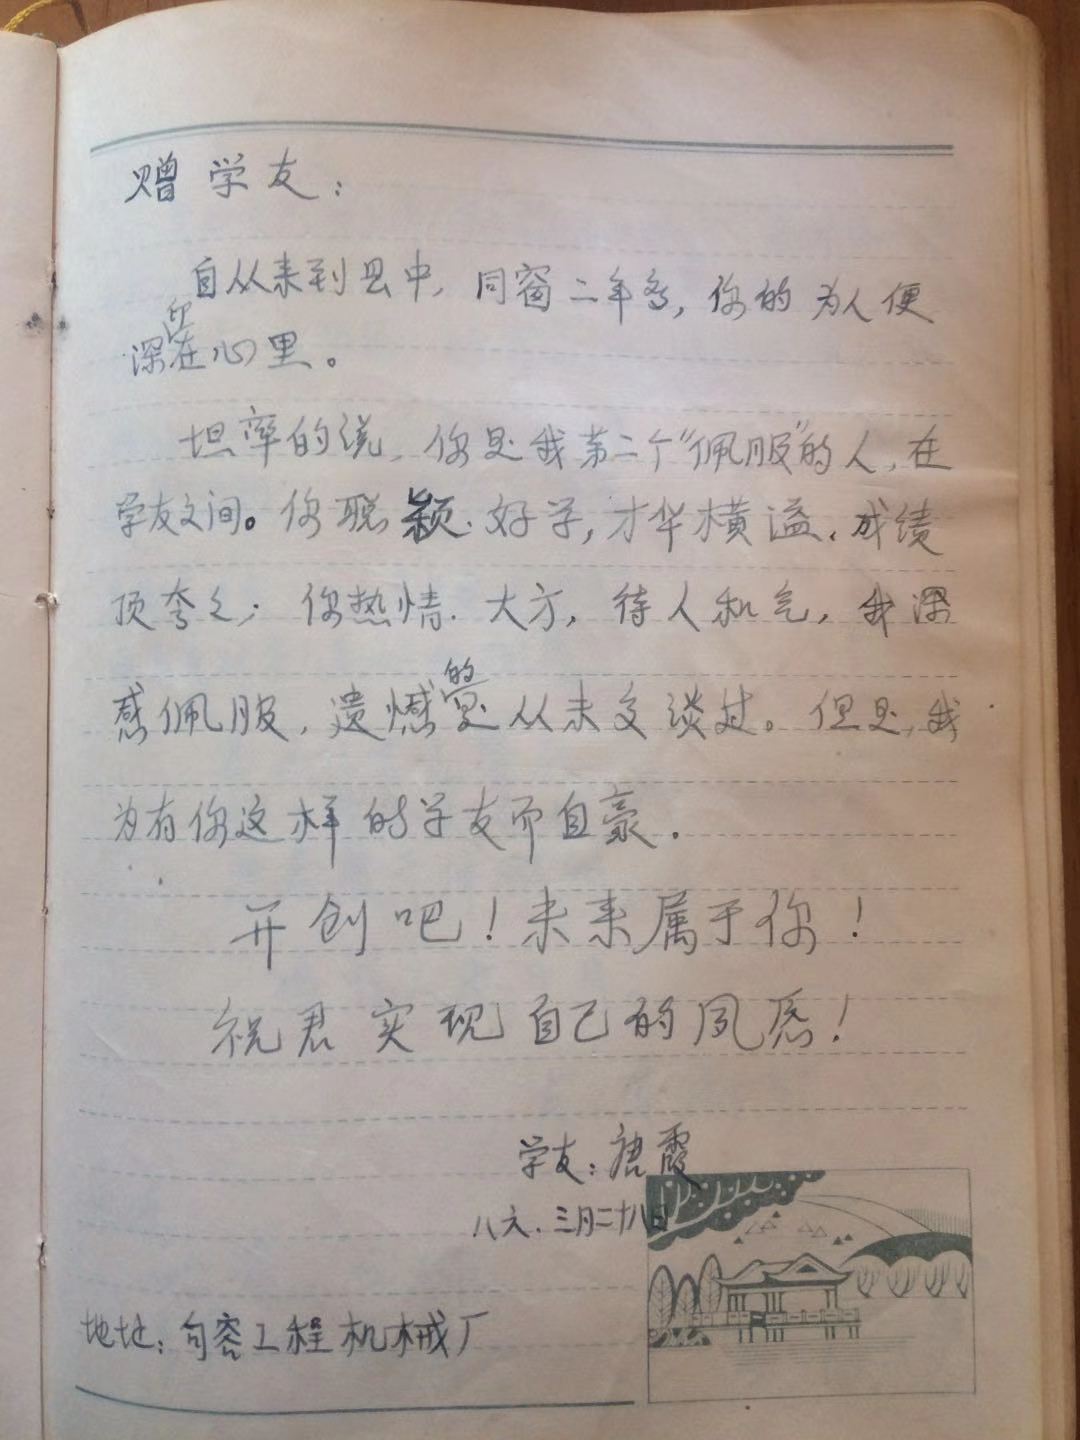 赠学友：
自从来到县中，同窗二年多，你的为人便
深印在心里。
坦率的说，你是我第二个“佩服”的人，在
学友之间。你聪颖、好学，才华横溢、成绩
顶夸夸；你热情、大方，待人和气，我深
感佩服，遗憾的是从未交谈过。但是，我
为有你这样的学友而自豪．
开创吧！未来属于你！
祝君实现自己的夙愿！
学友：唐霞
八六．三月二十八日
地址：句容工程机械厂